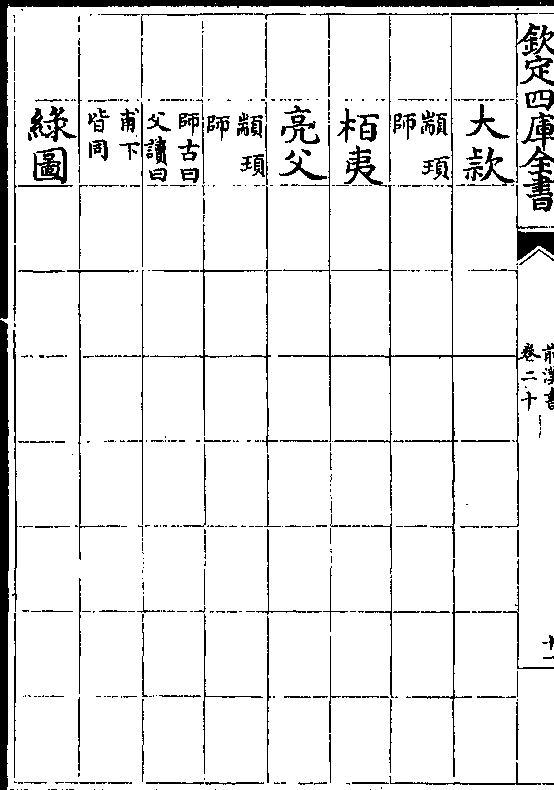 欽定四庫全書
前漢書
卷二十
十一
大款
顓頊
師
栢夷
亮父
顓頊
師
師古曰
父讀曰
甫下
皆同
綠圖